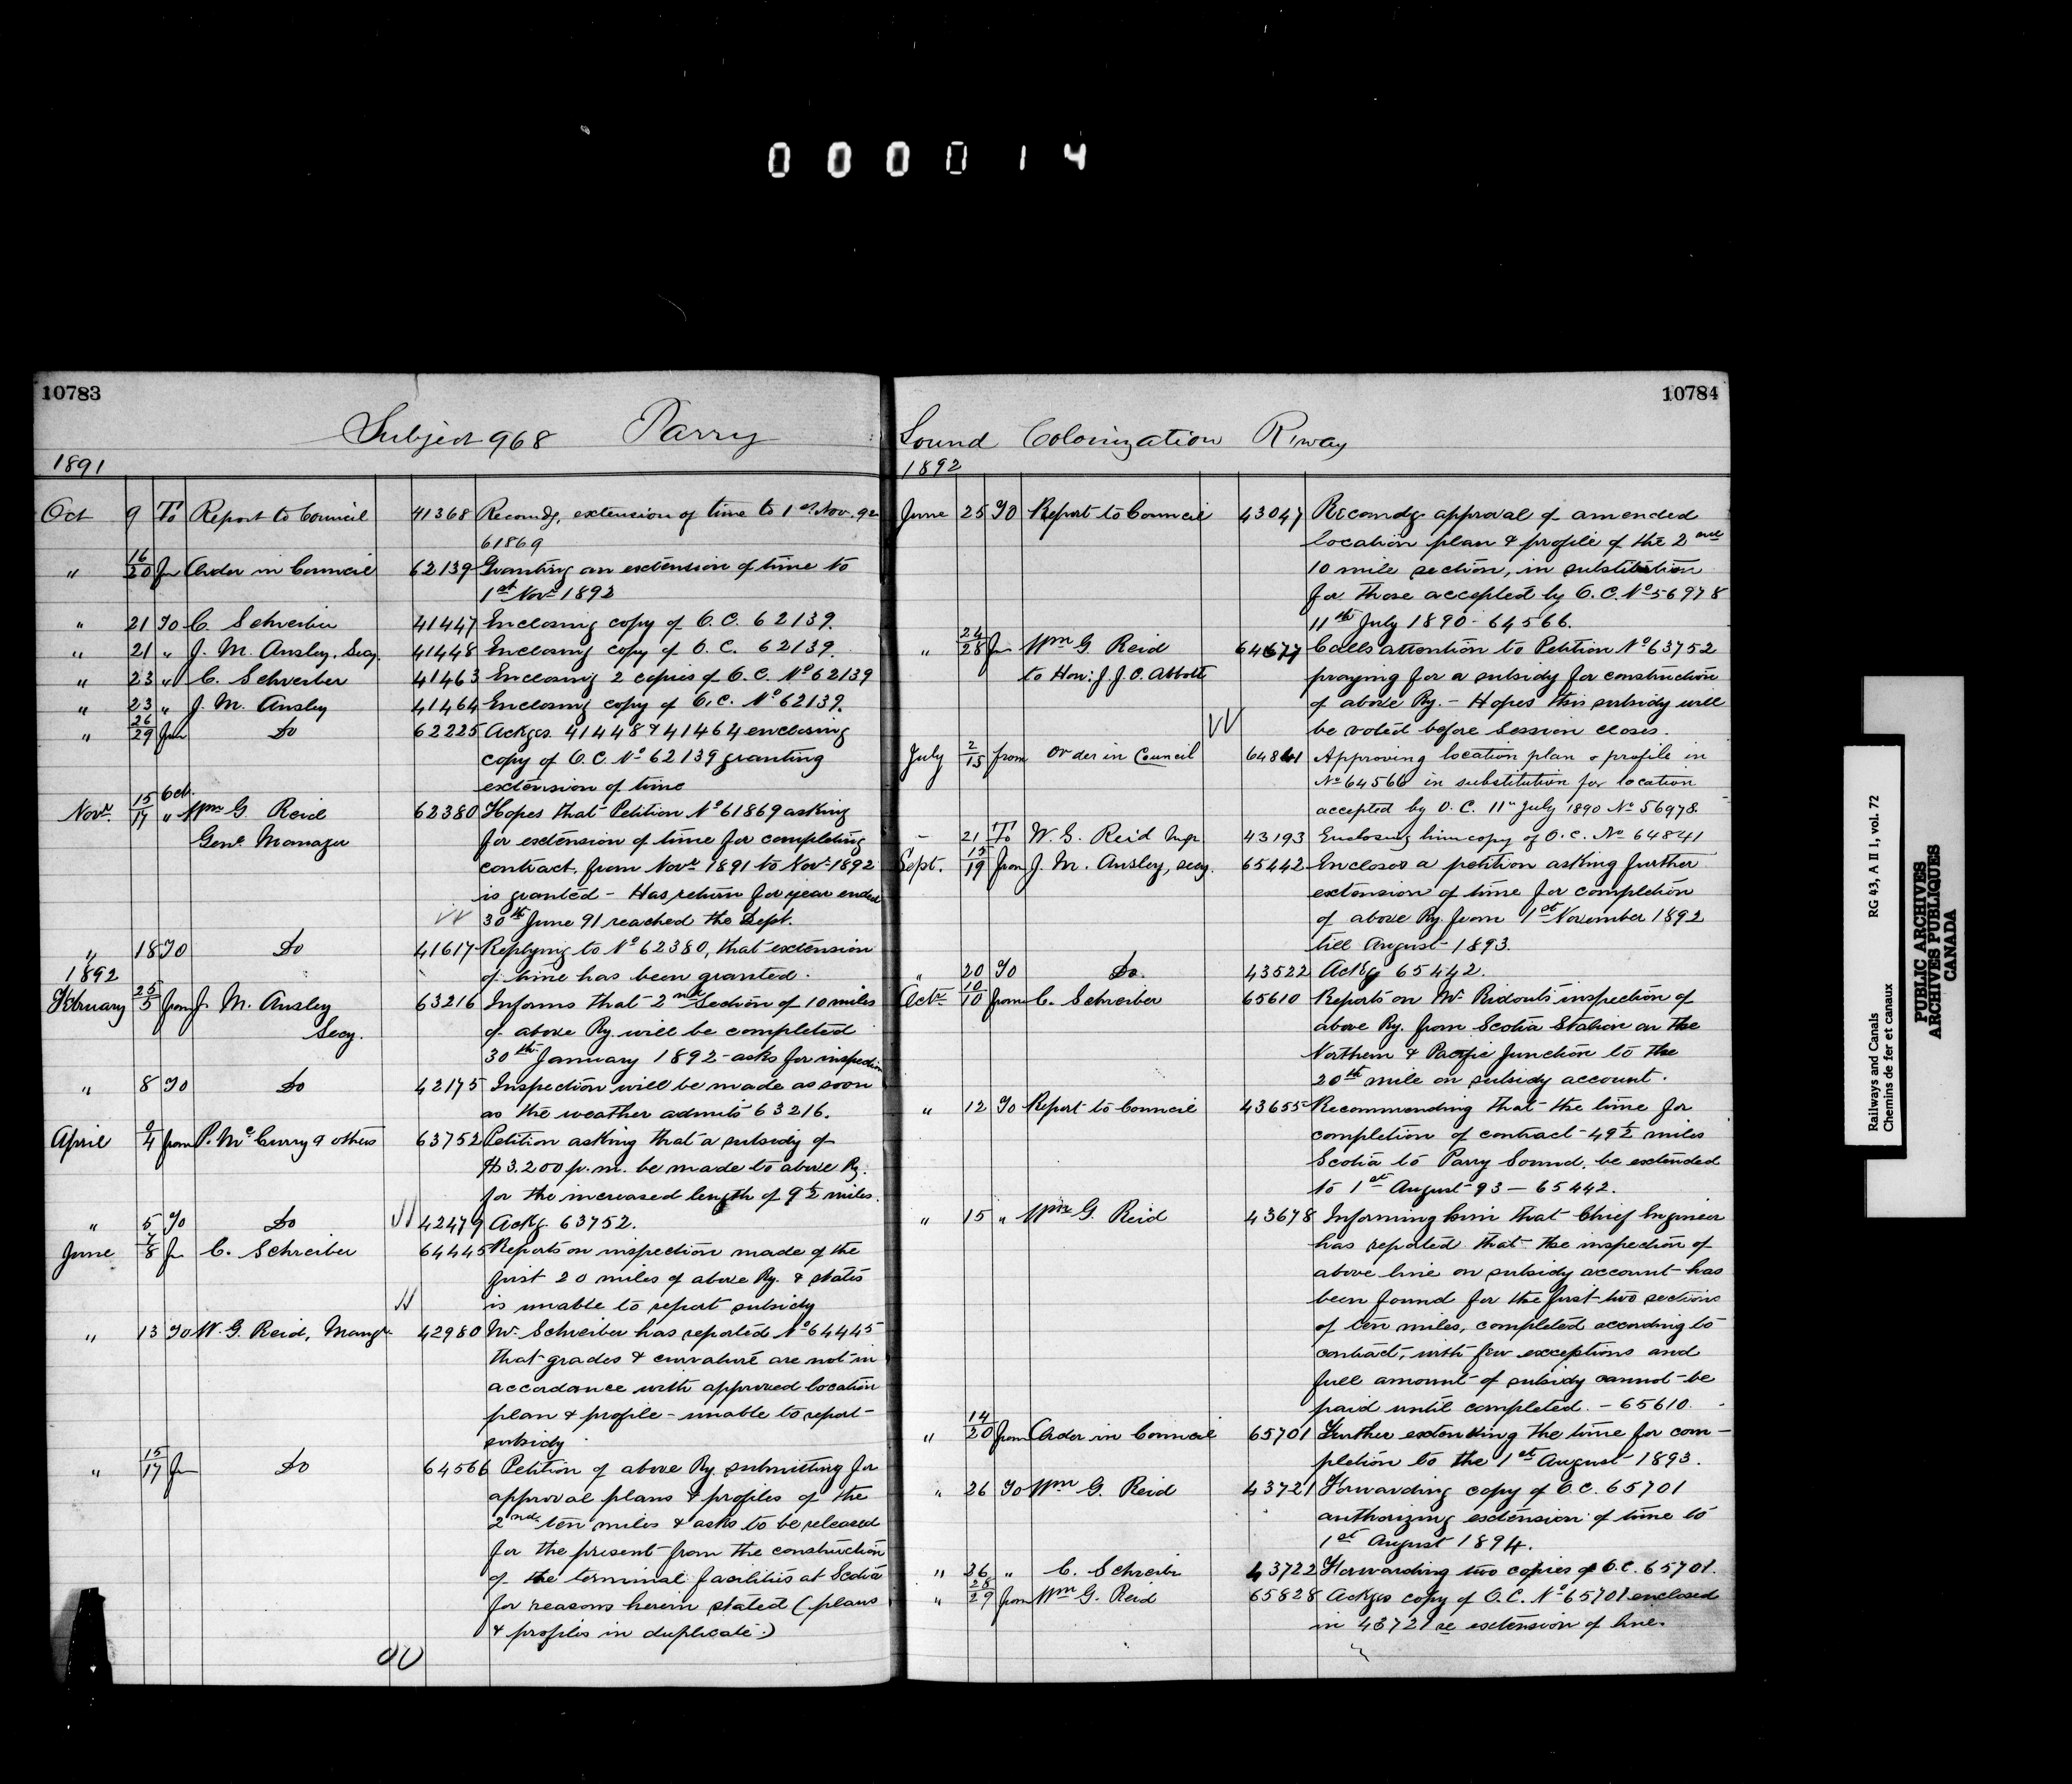 0 0 0 0 1 4
10783
Subject 968 Parry
1891
Oct 9 To Report to Council 41368 Recomdg. extension of time to 1st Nov. 92
61869
" 16/20 fm Order in Council 62139 Granting an extension of time to
1st Novr 1892
" 21 To C. Schreiber 41447 Enclosing copy of O.C. 62139.
" 21 " J. M. Ansley, Secy. 41448 Enclosing copy of O.C. 62139.
" 23 " C. Schreiber 41463 Enclosing 2 copies of O.C. No 62139
" 23 " J. M. Ansley 41464 Enclosing copy of O.C. No 62139.
" 26/29 fm Do 62225 Ackges. 41448 & 41464 enclosing
copy of O.C. No 62139 granting
extension of time
Novr. 15 Oct./17 " Wm G. Reid 62380 Hopes that Petition No 61869 asking
Genl Manager for extension of time for completing
contract, from Novr 1891 to Novr 1892
is granted - Has return for year ended
30th June 91 reached the Dept.
" 18 To Do 41617 Replying to No 62380, that extension
1892 of time has been granted.
February 25/5 from J. M. Ansley 63216 Informs that 2nd Section of 10 miles
Secy. of above Ry. will be completed
30th January 1892 - asks for inspection
" 8 To Do 42175 Inspection will be made as soon
as the weather admits 63216.
April 2/4 from P. McCurry & others 63752 Petition asking that a subsidy of
$3.200 p.m. be made to above Ry.
for the increased length of 9½ miles.
" 5 To Do 42479 Ackg. 63752.
June 7/8 fm C. Schreiber 64445 Reports on inspection made of the
first 20 miles of above Ry. & states
is unable to report subsidy
" 13 To W. G. Reid, Mangr. 42980 Mr Schreiber has reported No 64445
that grades & curvature are not in
accordance with approved location
plan & profile - unable to report
subsidy
" 15/17 fm Do 64566 Petition of above Ry. submitting for
approval plans & profiles of the
2nd ten miles & asks to be released
for the present from the construction
of the terminal facilities at Scotia
for reasons herein stated (plans
& profiles in duplicate.)
10784
Sound Colonization R'way
1892
June 25 To Report to Council 43047 Recomdg. approval of amended
location plan & profile of the 2nd
10 mile section, in substitution
for those accepted by O.C. No 56978
11th July 1890 - 64566.
" 24/28 fm Wm G Reid 64677 Calls attention to Petition No 63752
to Hon: J. J. C. Abbott praying for a subsidy for construction
of above Ry. - Hopes this subsidy will
be voted before Session closes.
July 2/15 from Order in Council 64841 Approving location plan & profile in
No 64566 in substitution for location
accepted by O.C. 11th July 1890 No 56978.
- 21 To W. G. Reid Mgr. 43193 Enclosing him copy of O.C. No 64841
Sept. 15/19 from J. M. Ansley, secy. 65442 Encloses a petition asking further
extension of time for completion
of above Ry. from 1st November 1892
till August 1893.
" 20 To Do. 43522 Ackg 65442.
Octr 10/10 from C. Schreiber 65610 Reports on Mr Ridout's inspection of
above Ry. from Scotia Station on the
Northern & Pacific Junction to the
20th mile on subsidy account.
" 12 To Report to Council 43655 Recommending that the time for
completion of contract - 49½ miles
Scotia to Parry Sound, be extended
to 1st August 93 - 65442.
" 15 " Wm G. Reid 43678 Informing him that Chief Engineer
has reported that the inspection of
above line on subsidy account has
been found for the first two sections
of ten miles, completed according to
contract, with few exceptions and
full amount of subsidy cannot be
paid until completed. - 65610.
" 14/20 from Order in Council 65701 Further extending the time for com-
pletion to the 1st August 1893.
" 26 To Wm G. Reid 43721 Forwarding copy of O.C. 65701
authorizing extension of time to
1st August 1894.
" 26 " C. Schreiber 43722 Forwarding two copies of O.C. 65701.
" 28/29 from Wm G. Reid 65828 Ackges copy of O.C. No 65701 enclosed
in 43721 re extension of line.
Railways and Canals RG 43, A II 1, vol. 72
Chemins de fer et canaux
PUBLIC ARCHIVES
ARCHIVES PUBLIQUES
CANADA